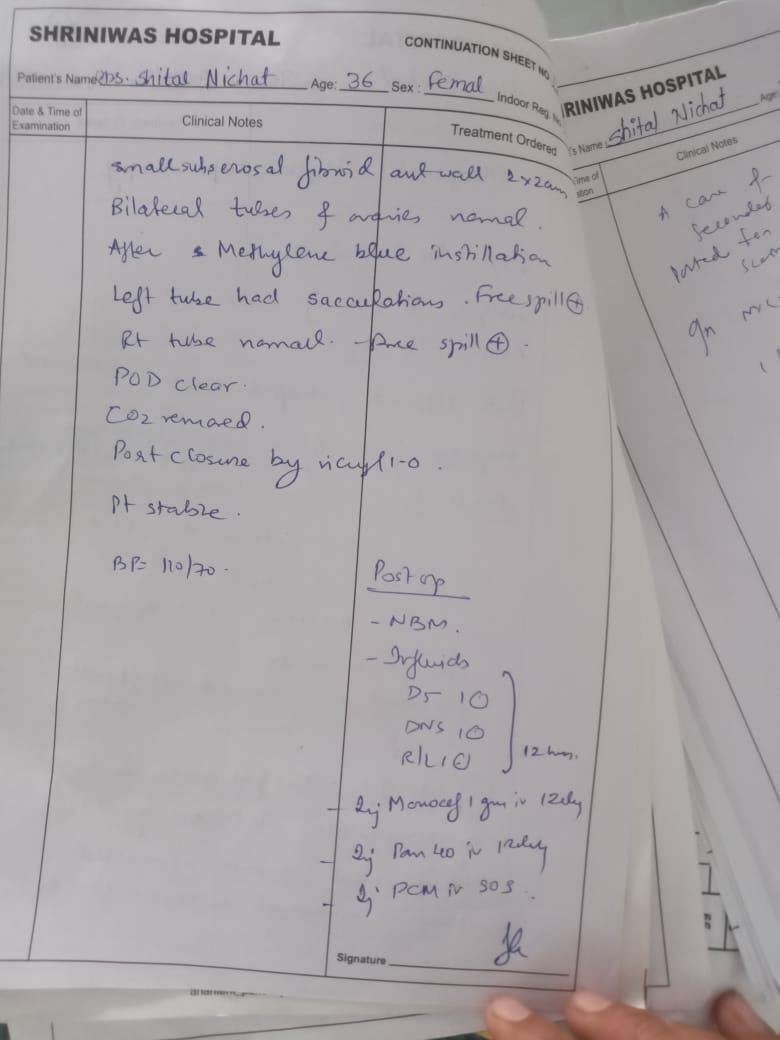 SHRINIWAS HOSPITAL
CONTINUATION SHEET NO
Patient's Name Mrs. Shital Nichat Age: 36 Sex: Femal Indoor Reg. No
Date & Time of Examination
Clinical Notes
Treatment Ordered
small subserosal fibroid ant wall 2x2cm
Bilateral tubes & ovaries normal.
After Methylene blue instillation
Left tube had sacculations. Free spill ⊕
Rt tube normal. Free spill ⊕.
POD clear.
CO2 removed.
Port closure by vicryl 1-0.
Pt stable.
BP= 110/70.
Post op
- NBM.
- Ivfluids
D5 1⊙
DNS 1⊙
R/L 1⊙
12 hrs.
- Inj Monocef 1 gm iv 12rly
- Inj Pan 40 iv 12rly
- Inj PCM iv SOS.
Signature
RINIWAS HOSPITAL
's Name: Shital Nichat Age:
ime of
ation
Clinical Notes
A case of
On